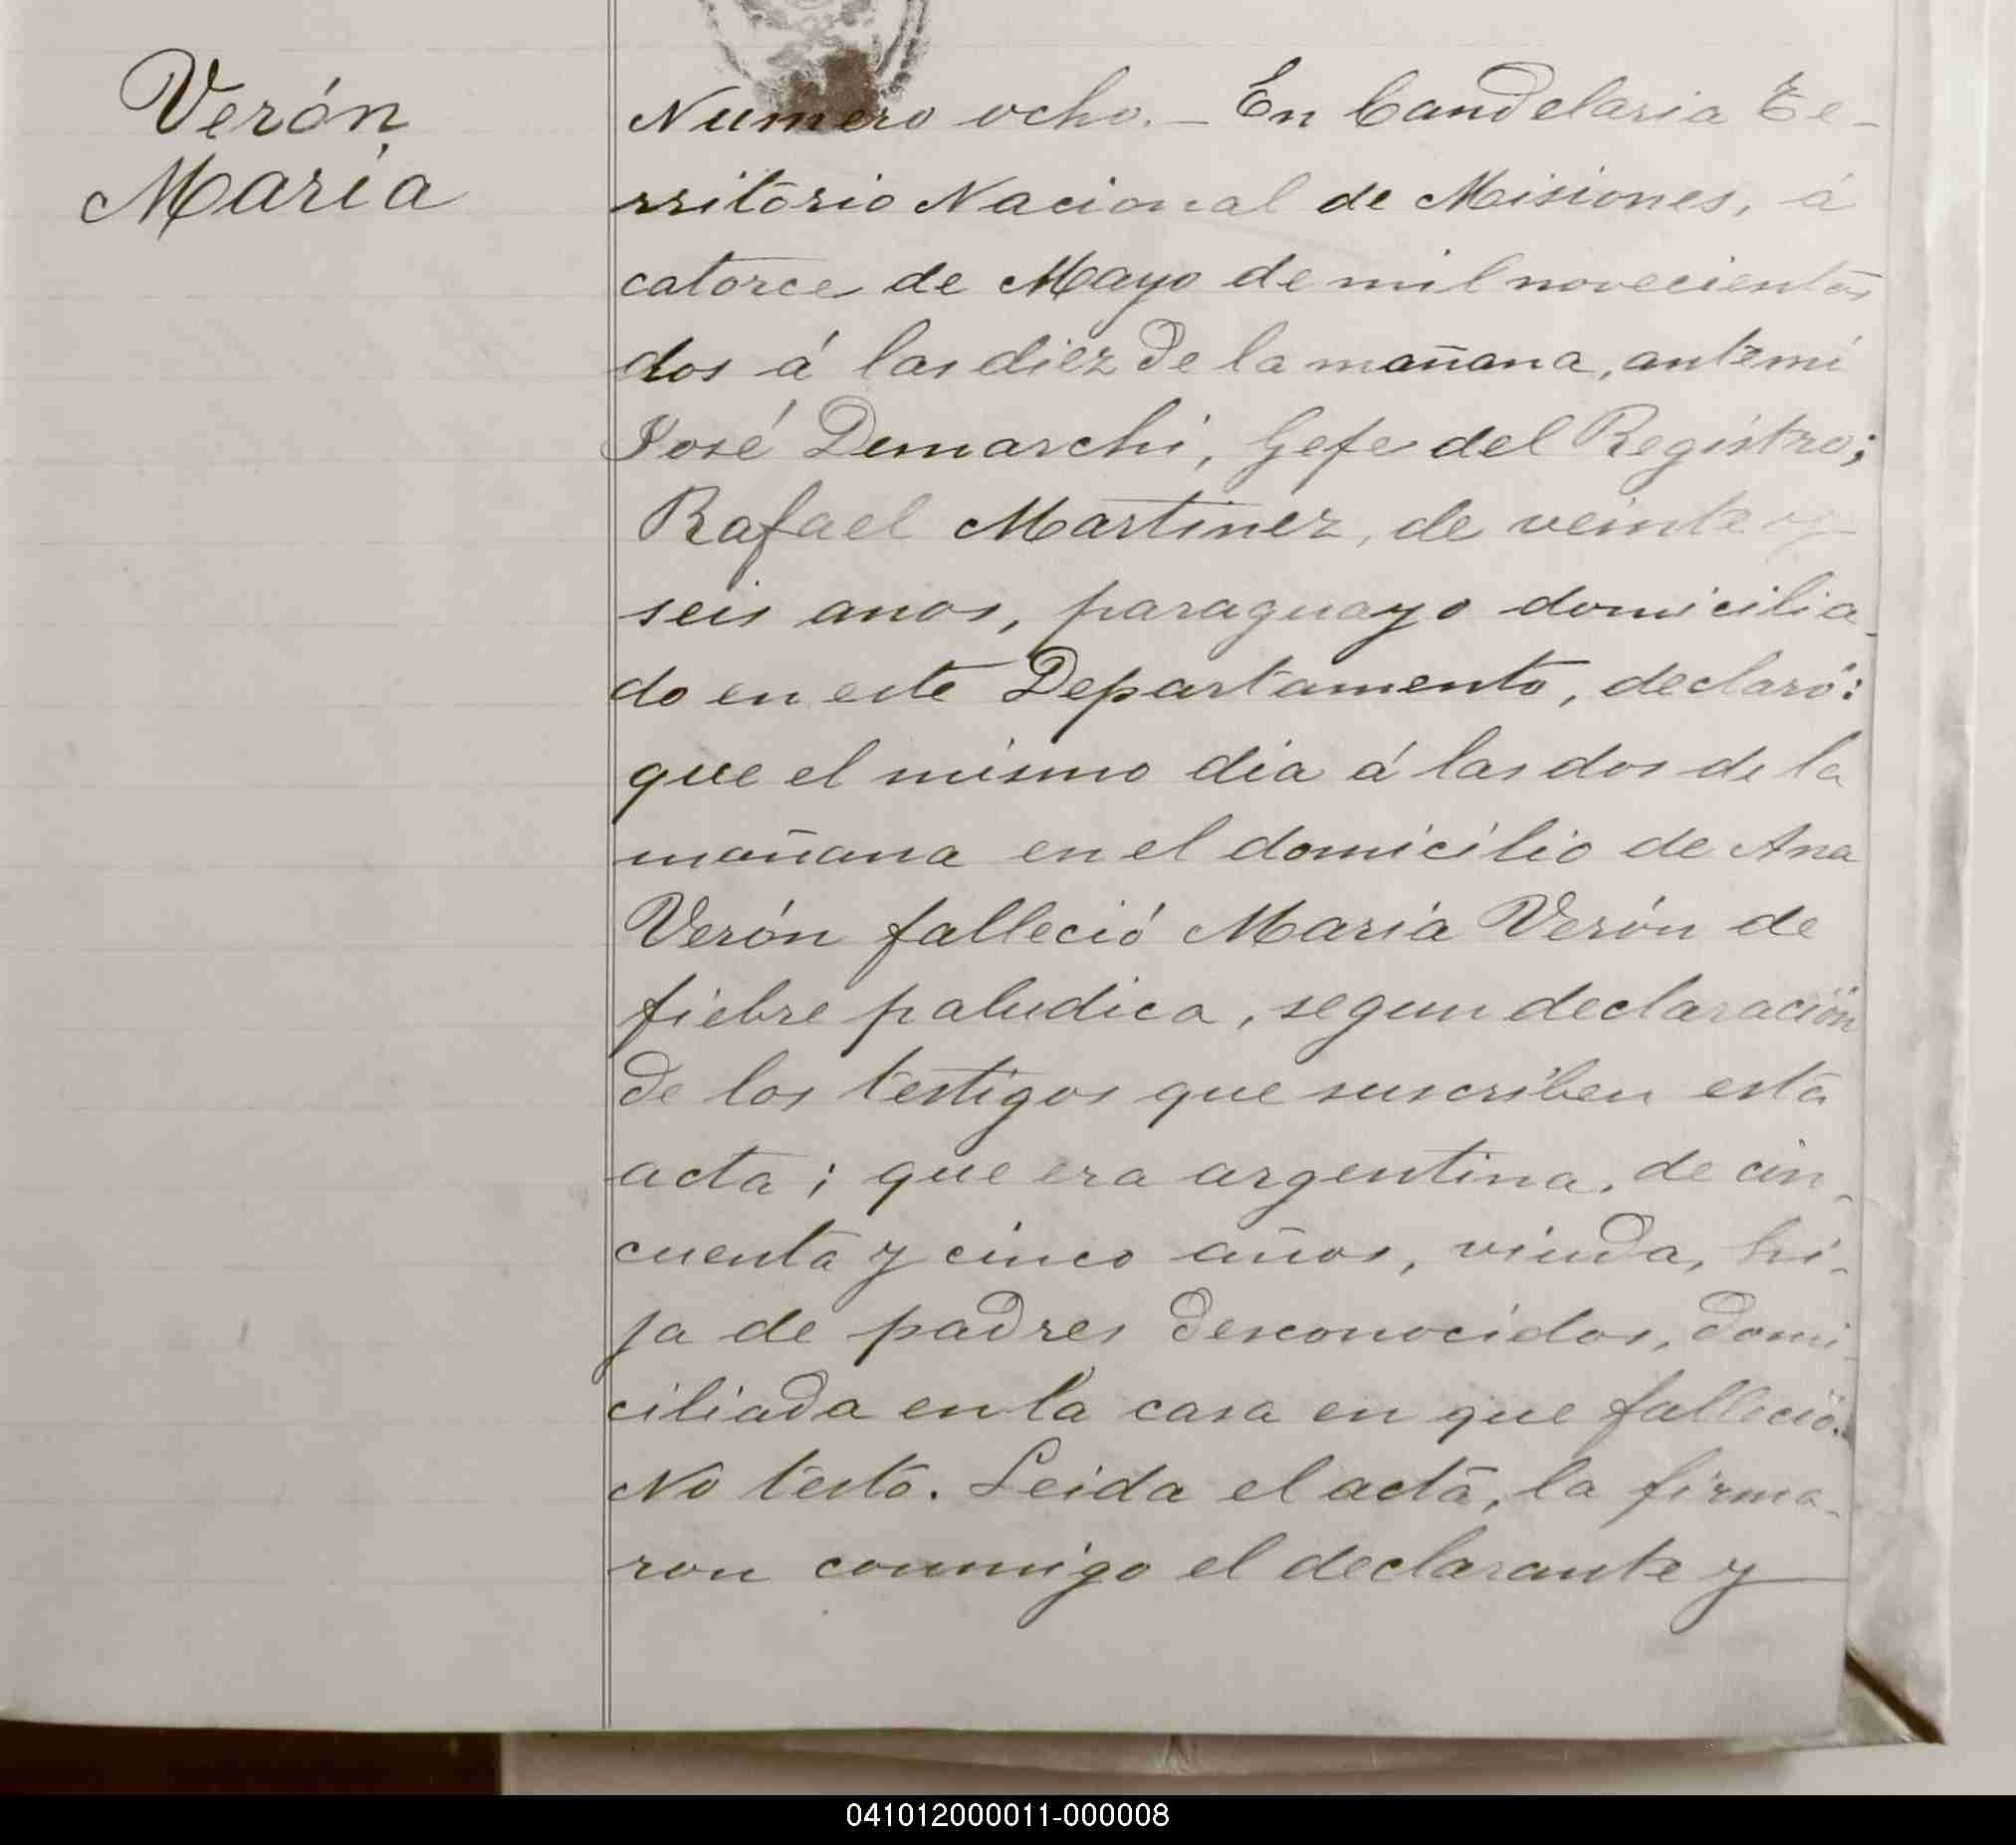 Verón
María
Numero ocho.— En Candelaria Te-
rritorio Nacional de Misiones, á
catorce de Mayo de mil novecientos
dos á las diez de la mañana, ante mi
José Demarchi, Gefe del Registro;
Rafael Martinez, de veinte y
seis anos, paraguayo domicilia-
do en este Departamento, declaró:
que el mismo dia á las dos de la
mañana en el domicilio de Ana
Verón falleció María Verón de
fiebre paludica, segun declaración
de los testigos que suscriben esta
acta; que era argentina, de cin-
cuenta y cinco años, viuda, hi-
ja de padres desconocidos, domi-
ciliada en la casa en que falleció.
No testó. Leida el acta, la firma-
ron conmigo el declarante y
041012000011-000008